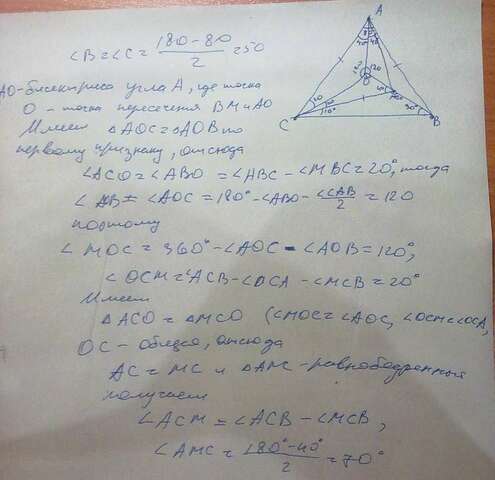 ∠B=∠C= (180-80)/2 =50
AO-биссектриса угла A, где точка
O - точка пересечения BM и AO
Имеем △AOC=△AOB по
первому признаку, отсюда
∠ACO=∠ABO=∠ABC-∠MBC=20°, тогда
∠AOB=∠AOC=180°-∠ABO-∠CAB/2=120
поэтому
∠MOC=360°-∠AOC-∠AOB=120°,
∠OCM=∠ACB-∠OCA-∠MCB=20°
Имеем
△ACO=△MCO (∠MOC=∠AOC, ∠OCM=∠OCA,
OC-общая, отсюда
AC=MC и △AMC-равнобедренный
получаем
∠ACM=∠ACB-∠MCB,
∠AMC= (180°-40°)/2 =70°
A
C
B
O
120